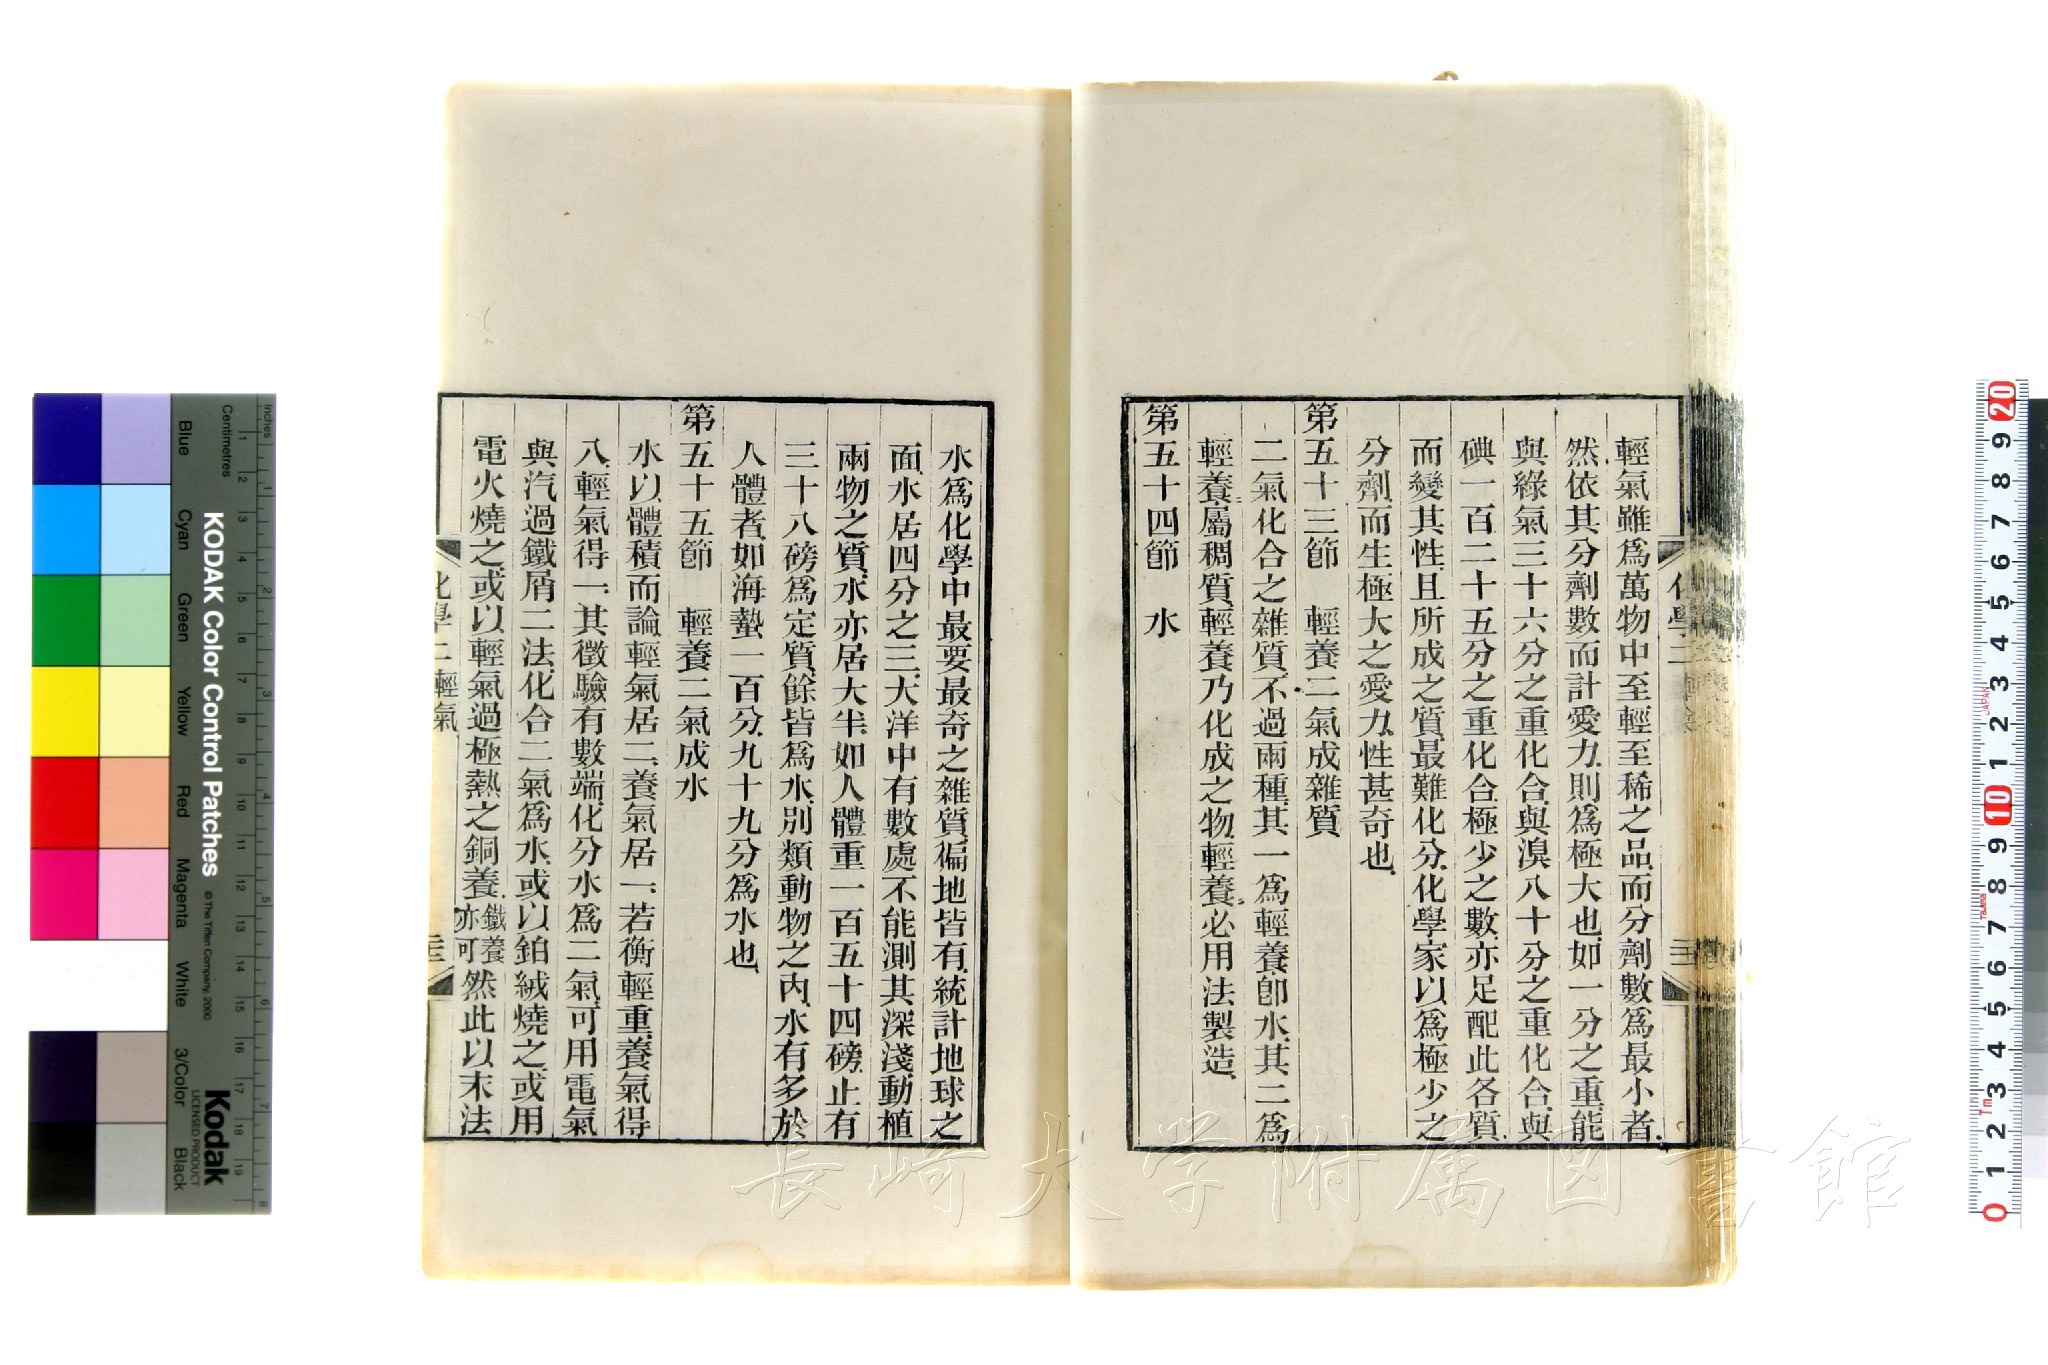 輕氣雖爲萬物中至輕至稀之品、而分劑數爲最小者、
然依其分劑數而計愛力、則爲極大也、如一分之重、能
與綠氣三十六分之重化合、與溴八十分之重化合、與
碘一百二十五分之重化合、極少之數、亦足配此各質、
而變其性、且所成之質、最難化分、化學家以爲極少之
分劑、而生極大之愛力、性甚奇也、
第五十三節　輕養二氣成雜質
二氣化合之雜質、不過兩種、其一爲輕養、卽水、其二爲
輕養、屬稠質、輕養乃化成之物、輕養、必用法製造、
第五十四節　水
水爲化學中最要最奇之雜質、徧地皆有、統計地球之
面、水居四分之三、大洋中有數處不能測其深淺、動植
兩物之質、水亦居大半、如人體重一百五十四磅、止有
三十八磅爲定質、餘皆爲水、別類動物之內、水有多於
人體者、如海蟄一百分、九十九分爲水也、
第五十五節　輕養二氣成水
水以體積而論、輕氣居二、養氣居一、若衡輕重、養氣得
八、輕氣得一、其徵驗有數端、化分水爲二氣、可用電氣
與汽過鐵屑二法、化合二氣爲水、或以鉑絨燒之、或用
電火燒之、或以輕氣過極熱之銅養、鐵養亦可然此以末法
化學二　輕氣
KODAK Color Control Patches
© The Tiffen Company, 2000
Kodak
LICENSED PRODUCT
Inches
Centimetres
Blue
Cyan
Green
Yellow
Red
Magenta
White
3/Color
Black
長崎大学附属図書館
JAPAN
Tajima